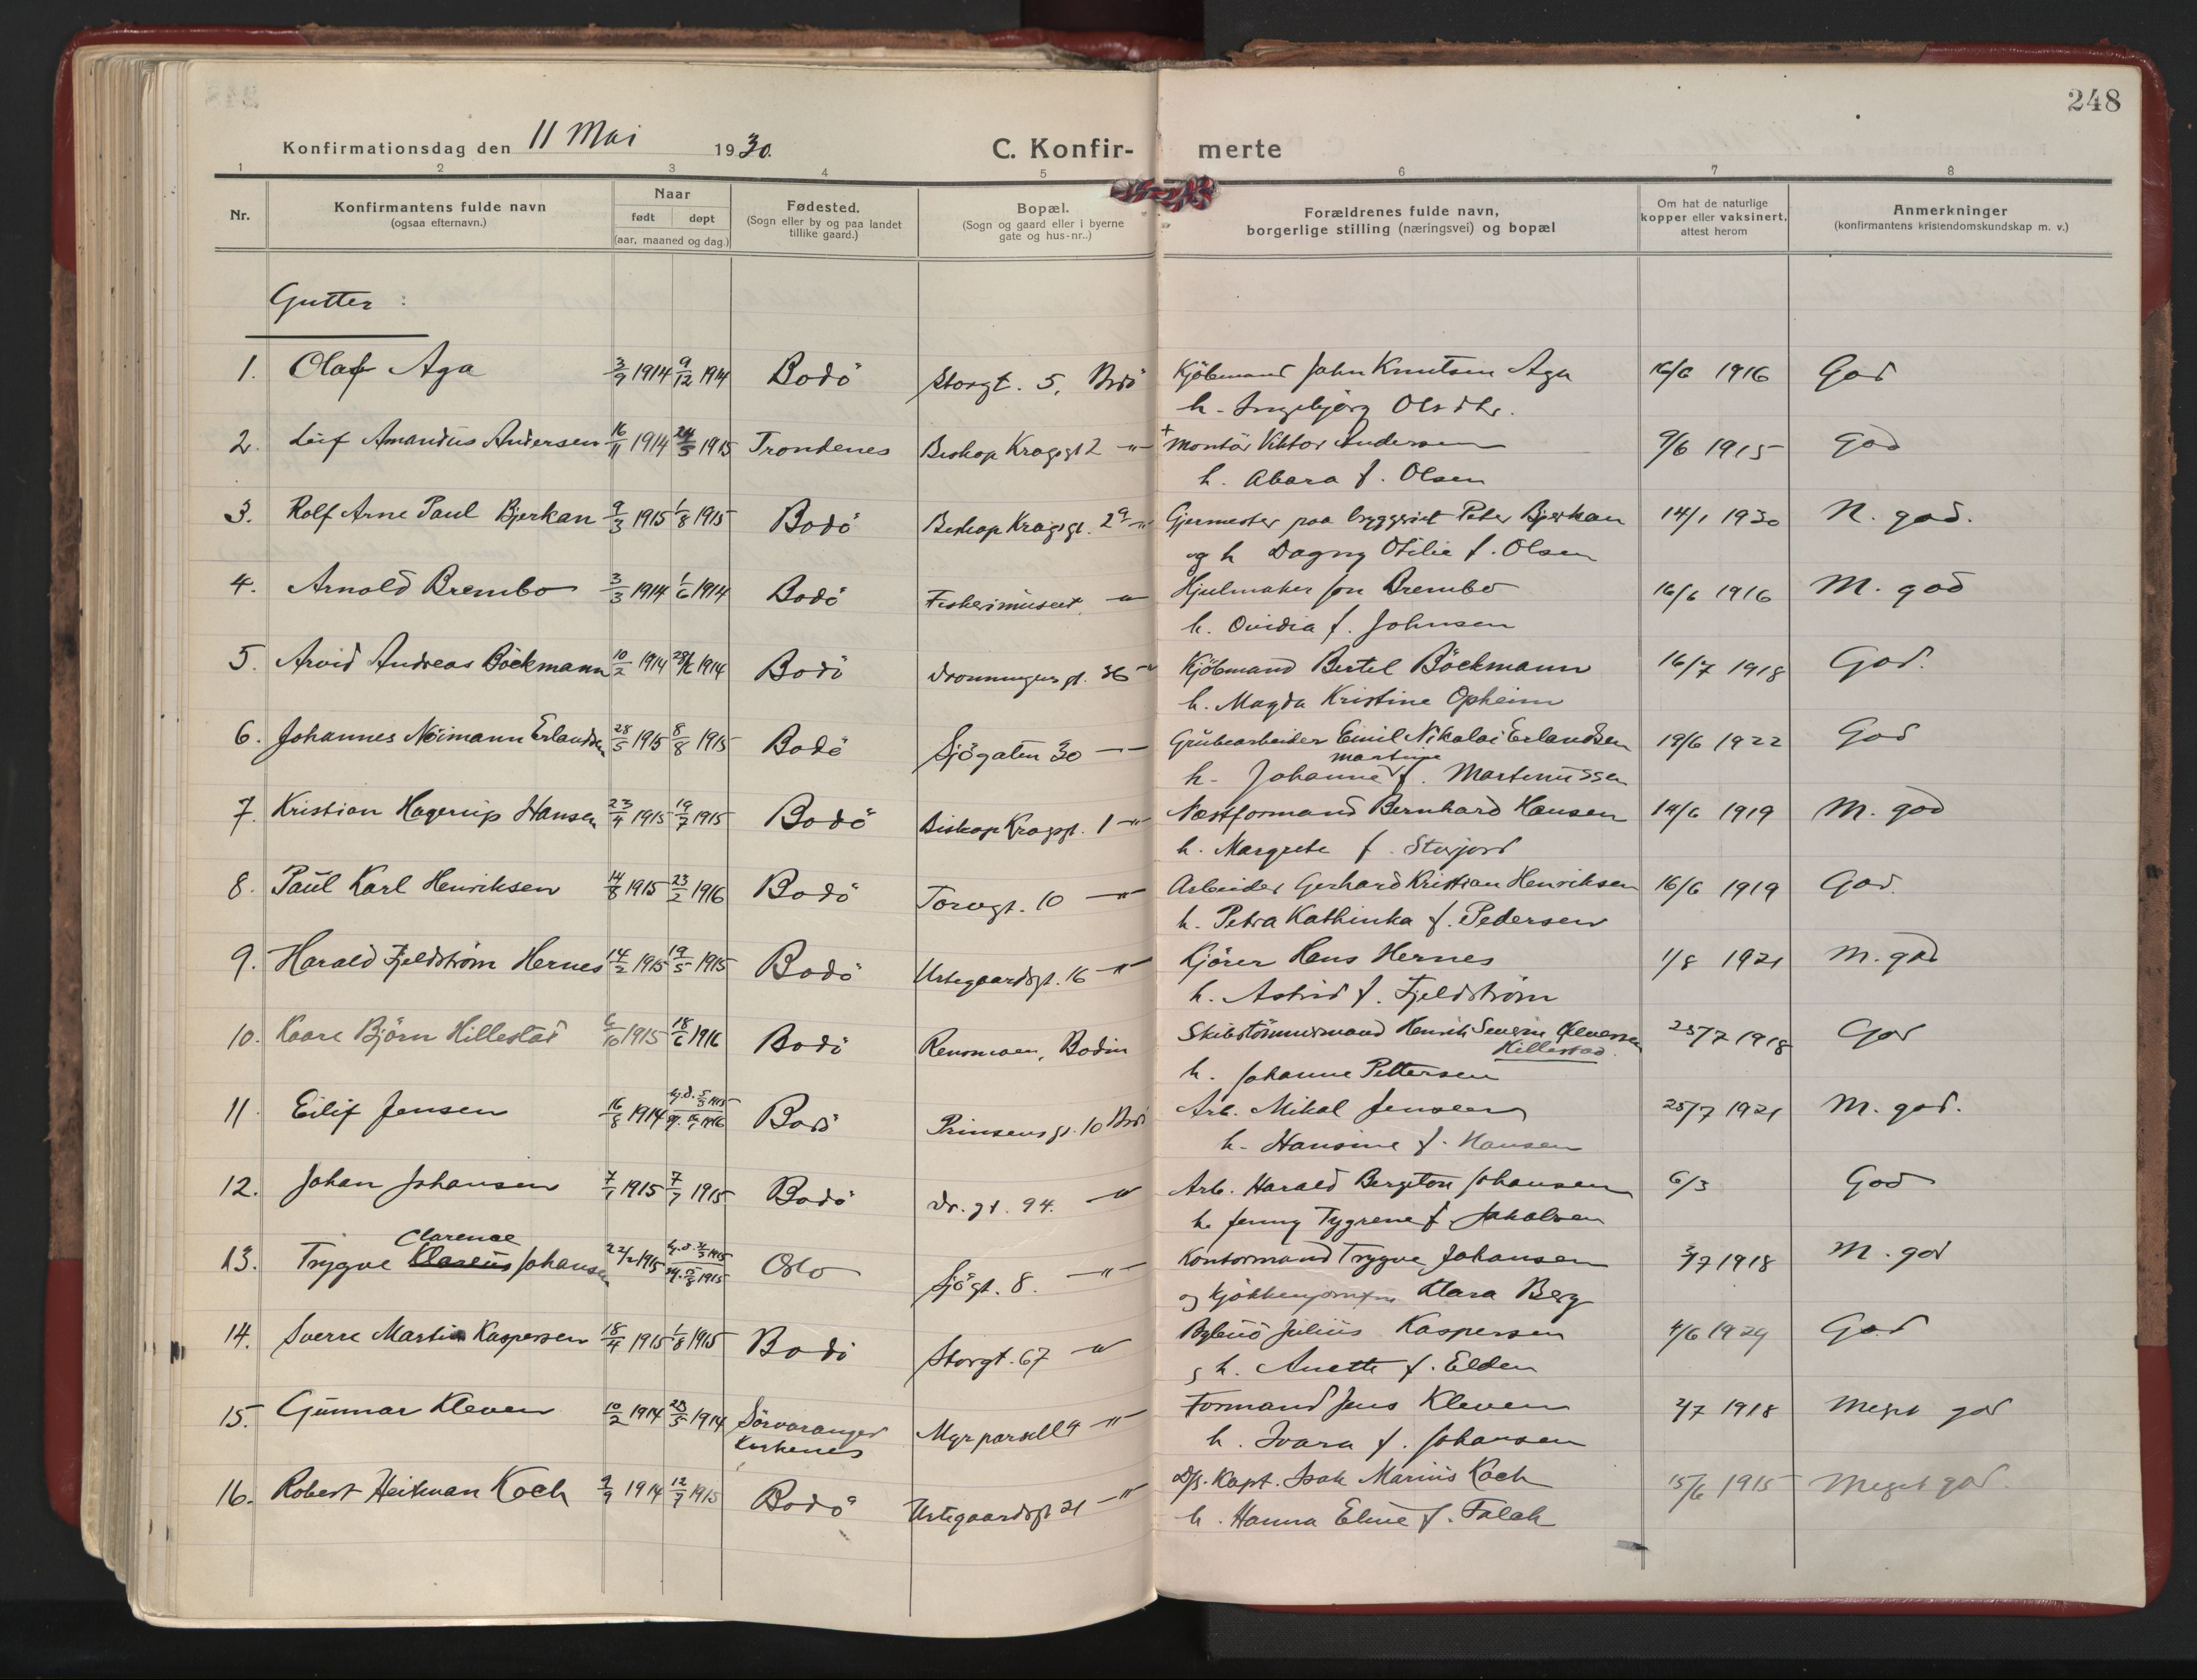 248
Konfirmationsdag den 11 Mai 1930.
C. Konfir- merte
1 2 3 4 5 6 7 8
Nr.
Konfirmantens fulde navn
(ogsaa efternavn.)
Naar
født døpt
(aar, maaned og dag.)
Fødested.
(Sogn eller by og paa landet
tillike gaard.)
Bopæl.
(Sogn og gaard eller i byerne
gate og hus-nr..)
Forældrenes fulde navn,
borgerlige stilling (næringsvei) og bopæl
Om hat de naturlige
kopper eller vaksinert,
attest herom
Anmerkninger
(konfirmantens kristendomskundskap m. v.)
Gutter :
1. Olaf Aga 3/9 1914 9/12 1914 Bodö Storgt. 5, Bodö Kjöbmand John Knutsen Aga 16/6 1916 God
h. Ingebjörg Olsdtr.
2. Leif Amandus Andersen 16/11 1914 24/5 1915 Trondenes Biskop Kragsgt 2 -"- + Montör Viktor Andersen 9/6 1915 God
h. Abara f. Olsen
3. Rolf Arne Paul Bjerkan 9/3 1915 1/8 1915 Bodö Biskop Kragsgt. 2a -"- Gjermester paa bryggeriet Peter Bjerkan 14/1 1930 N. god.
og h Dagny Otilie f. Olsen
4. Arnold Brembo 3/3 1914 1/6 1914 Bodö Fiskerimuseet -"- Hjulmaker Jon Brembo 16/6 1916 M. god
h. Ovidia f. Johnsen
5. Arvid Andreas Böckmann 10/2 1914 28/6 1914 Bodö Dronningens gt. 36 -"- Kjöbmand Bertel Böckmann 16/7 1918 God.
h. Magda Kristine Opheim
6. Johannes Nöimann Erlandsen 28/5 1915 8/8 1915 Bodö Sjögaten 30 -"- Grubearbeider Emil Nikolai Erlandsen 19/6 1922 God
martine
h. Johanne f. Martinussen
7. Kristian Hagerup Hansen 23/4 1915 19/7 1915 Bodö Biskop Kragsgt. 1 -"- Næstformand Bernhard Hansen 14/6 1919 M. god
h. Margrete f. Storjord
8. Paul Karl Henriksen 14/8 1915 23/2 1916 Bodö Torvgt. 10 -"- Arbeider Gerhard Kristian Henriksen 16/6 1919 God.
h. Petra Kathinka f. Pedersen
9. Harald Fjeldström Hernes 14/2 1915 19/5 1915 Bodö Urtegaardsgt. 16 -"- Kjörer Hans Hernes 1/8 1921 M. god
h. Astrid f. Fjeldström
10. Kaare Björn Hillestad 6/10 1915 18/6 1916 Bodö Rensmoen, Bodin Skibstömmermand Henrik Severin 25/7 1918 God
Hillestad.
h. Johanne Pettersen
11 Eilif Jensen 16/8 1914 hj.d. 5/5 1915 Bodö Prinsensgt. 10 Bodö Arb. Mikal Jensen 25/7 1921 M. god.
h. Hansine f. Hansen
12. Johan Johansen 7/1 1915 7/7 1915 Bodö Dr. gt. 94. -"- Arb. Harald Bergiton Johansen 6/3 God
h. Jenny Tygrene f. Jakobsen
Clarence
13. Trygve Klareus Johansen 22/2 1915 Oslo Sjögt. 8. -"- Kontormand Trygve Johansen 3/7 1918 M. god
og Clara Berg
14. Sverre Martin Kaspersen 18/4 1915 1/8 1915 Bodö Storgt. 67 -"- Bybud Julius Kaspersen 4/6 1929 God
h. Anette f. Elden
15. Gunnar Kleven 10/2 1914 28/5 1914 Sörvaranger Myrparsell 4 -"- Formand Jens Kleven 2/7 1918 Meget god
Kirkenes
h. Ivara f. Johansen
16. Robert Heitman Koch 2/9 1914 12/7 1915 Bodö Urtegaardsgt 21 -"- D/s. Kapt. Isak Marius Koch 15/6 1915 Meget god.
h. Hanna Eline f. Falch